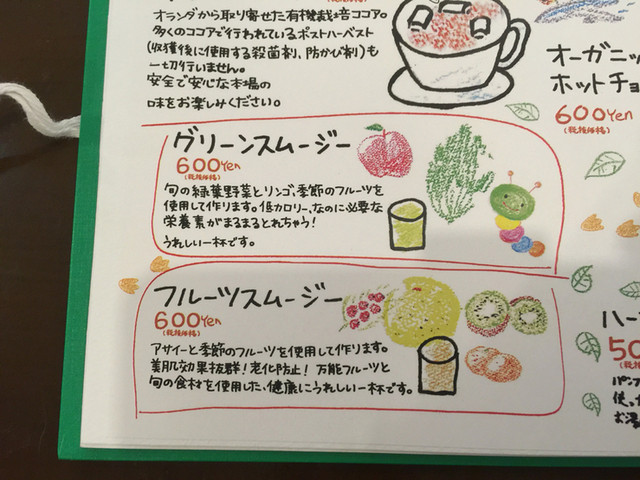 オランダから取り寄せた有機栽培ココア。
多くのココアで行われているポストハーベスト
(収穫後に使用する殺菌剤、防かび剤)も
一切行いません。
安全で安心な本場の
味をお楽しみください。
オーガニッ
ホットチョ
600Yen
(税抜価格)
グリーンスムージー
600Yen
(税抜価格)
旬の緑葉野菜とリンゴ、季節のフルーツを
使用して作ります。低カロリー、なのに必要な
栄養素がまるまるとれちゃう!
うれしい一杯です。
フルーツスムージー
600Yen
(税抜価格)
アサイーと季節のフルーツを使用して作ります。
美肌効果抜群!老化防止!万能フルーツと
旬の食材を使用した、健康にうれしい一杯です。
ハー
50
パンフ
使っ
お湯